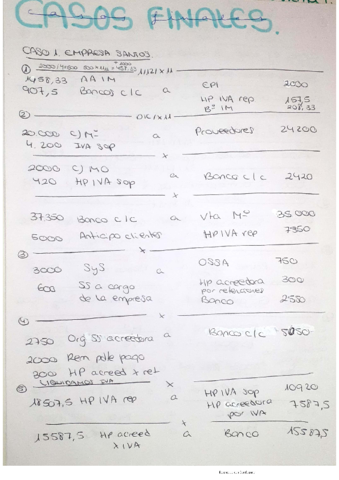 CASOS FINALES.
CASO 1. EMPRESA SANTOS
①
1458,33 AA IM a EPI 2000
907,5 Bancos c/c HP IVA rep 157,5
Bº IM 208,33
②
20.000 C) Mª a Proveedores 24200
4.200 IVA sop
x
2000 C) MO a Banco c/c 2420
420 HP IVA sop
x
37350 Banco c/c a Vta Mª 35000
5000 Anticipo clientes HP IVA rep 7350
③ x
3000 SyS a OSSA 750
600 SS a cargo de la empresa HP acreedora por retenciones 300
Banco 2550
④ x
2750 Org SS acreedora a Banco c/c 5050
2000 Rem pdte pago
300 HP acreed x ret
LIQUIDAMOS IVA x
⑤ HP IVA sop 10920
18507,5 HP IVA rep a HP acreedora por IVA 7587,5
x
15587,5 HP acreed x IVA a Banco 15587,5